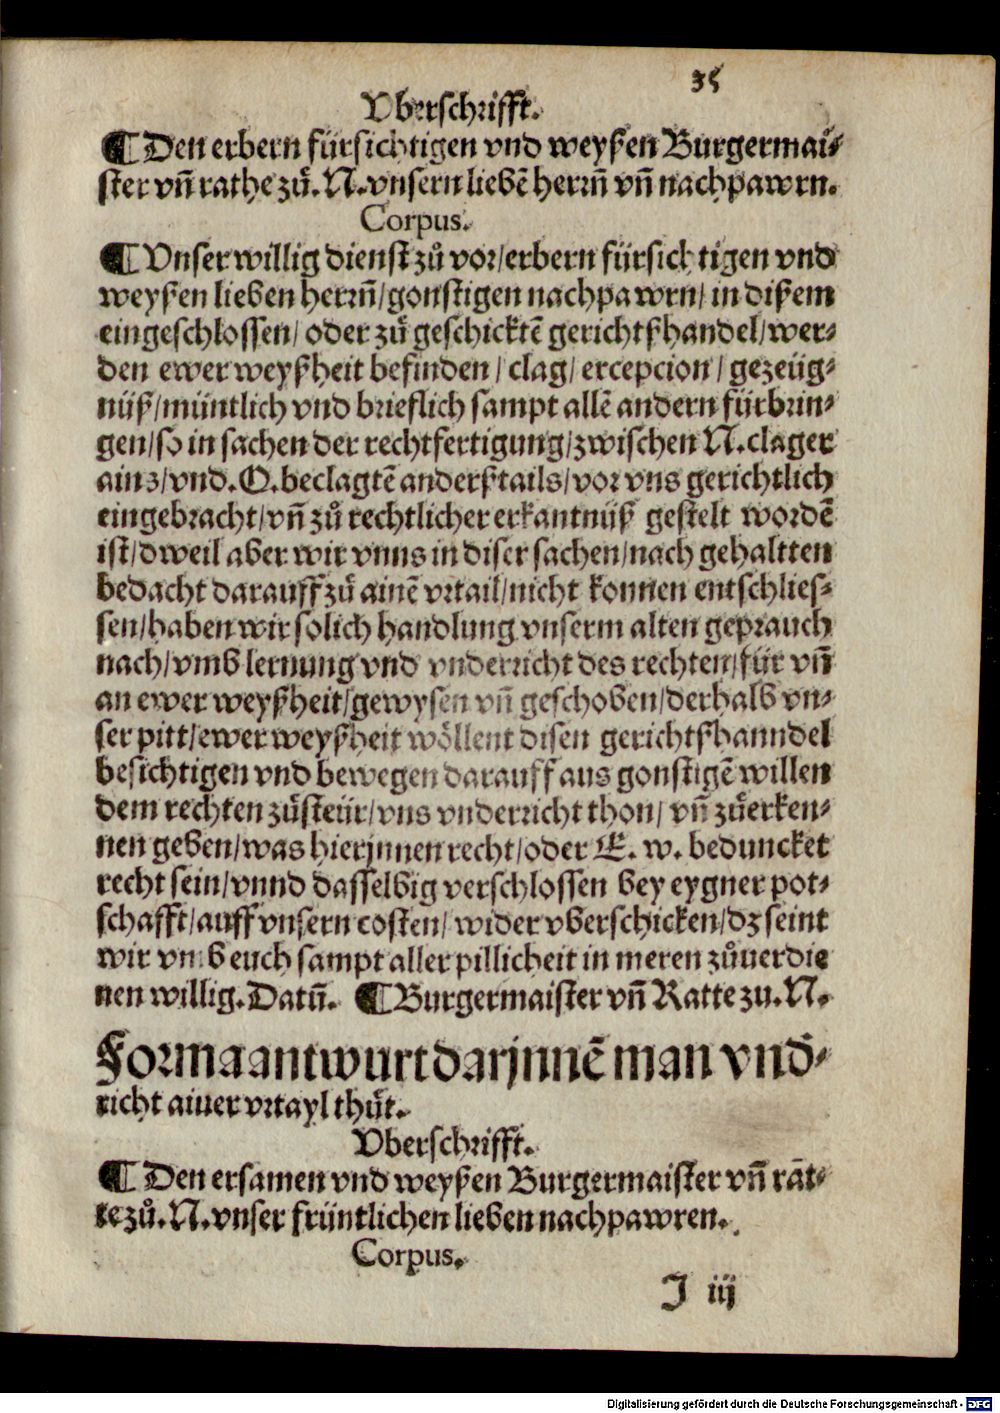 35
Vberschrifft.
¶ Den erbern fürsichtigen vnd weyßen Burgermai⸗
ster vñ rathe zů. N. vnsern liebē herrñ vñ nachpawrn.
Corpus.
¶ Vnser willig dienst zů vor/ erbern fürsichtigen vnd
weyßen lieben herrñ/ gonstigen nachpawrn/ in dißem
eingeschlossen/ oder zů geschicktē gerichtßhandel/ wer⸗
den ewer weyßheit befinden/ clag/ ercepcion/ gezeüg⸗
nüß/ müntlich vnd brieflich sampt allē andern fürbrin⸗
gen/ so in sachen der rechtfertigung/ zwischen N. clager
ains/ vnd. O. beclagtē anderßtails/ vor vns gerichtlich
eingebracht/ vñ zů rechtlicher erkantnüß gestelt wordē
ist/ dweil aber wir vnns in diser sachen/ nach gehaltten
bedacht darauff zů ainē vrtail/ nicht konnen entschlies⸗
sen/ haben wir solich handlung vnserm alten geprauch
nach/ vmb lernung vnd vnderricht des rechten/ für vñ
an ewer weyßheit/ gewysen vñ geschoben/ derhalb vn⸗
ser pitt/ ewer weyßheit wöllent disen gerichtßhanndel
besichtigen vnd bewegen darauff aus gonstigē willen
dem rechten zůsteür/ vns vnderricht thon/ vñ zůerken⸗
nen geben/ was hierjnnen recht/ oder E. w. beduncket
recht sein/ vnnd dasselbig verschlossen bey eygner pot⸗
schafft/ auff vnsern costen/ wider vberschicken/ dz seint
wir vmb euch sampt aller pillicheit in meren zůuerdie
nen willig. Datū. ¶ Burgermaister vñ Ratte zu. N.
Forma antwurt darjnnē man vnd⸗
richt aiuer vrtayl thůt.
Vberschrifft.
¶ Den ersamen vnd weyßen Burgermaister vñ rāt⸗
te zů. N. vnser früntlichen lieben nachpawren.
Corpus.
J iij
Digitalisierung gefördert durch die Deutsche Forschungsgemeinschaft - DFG